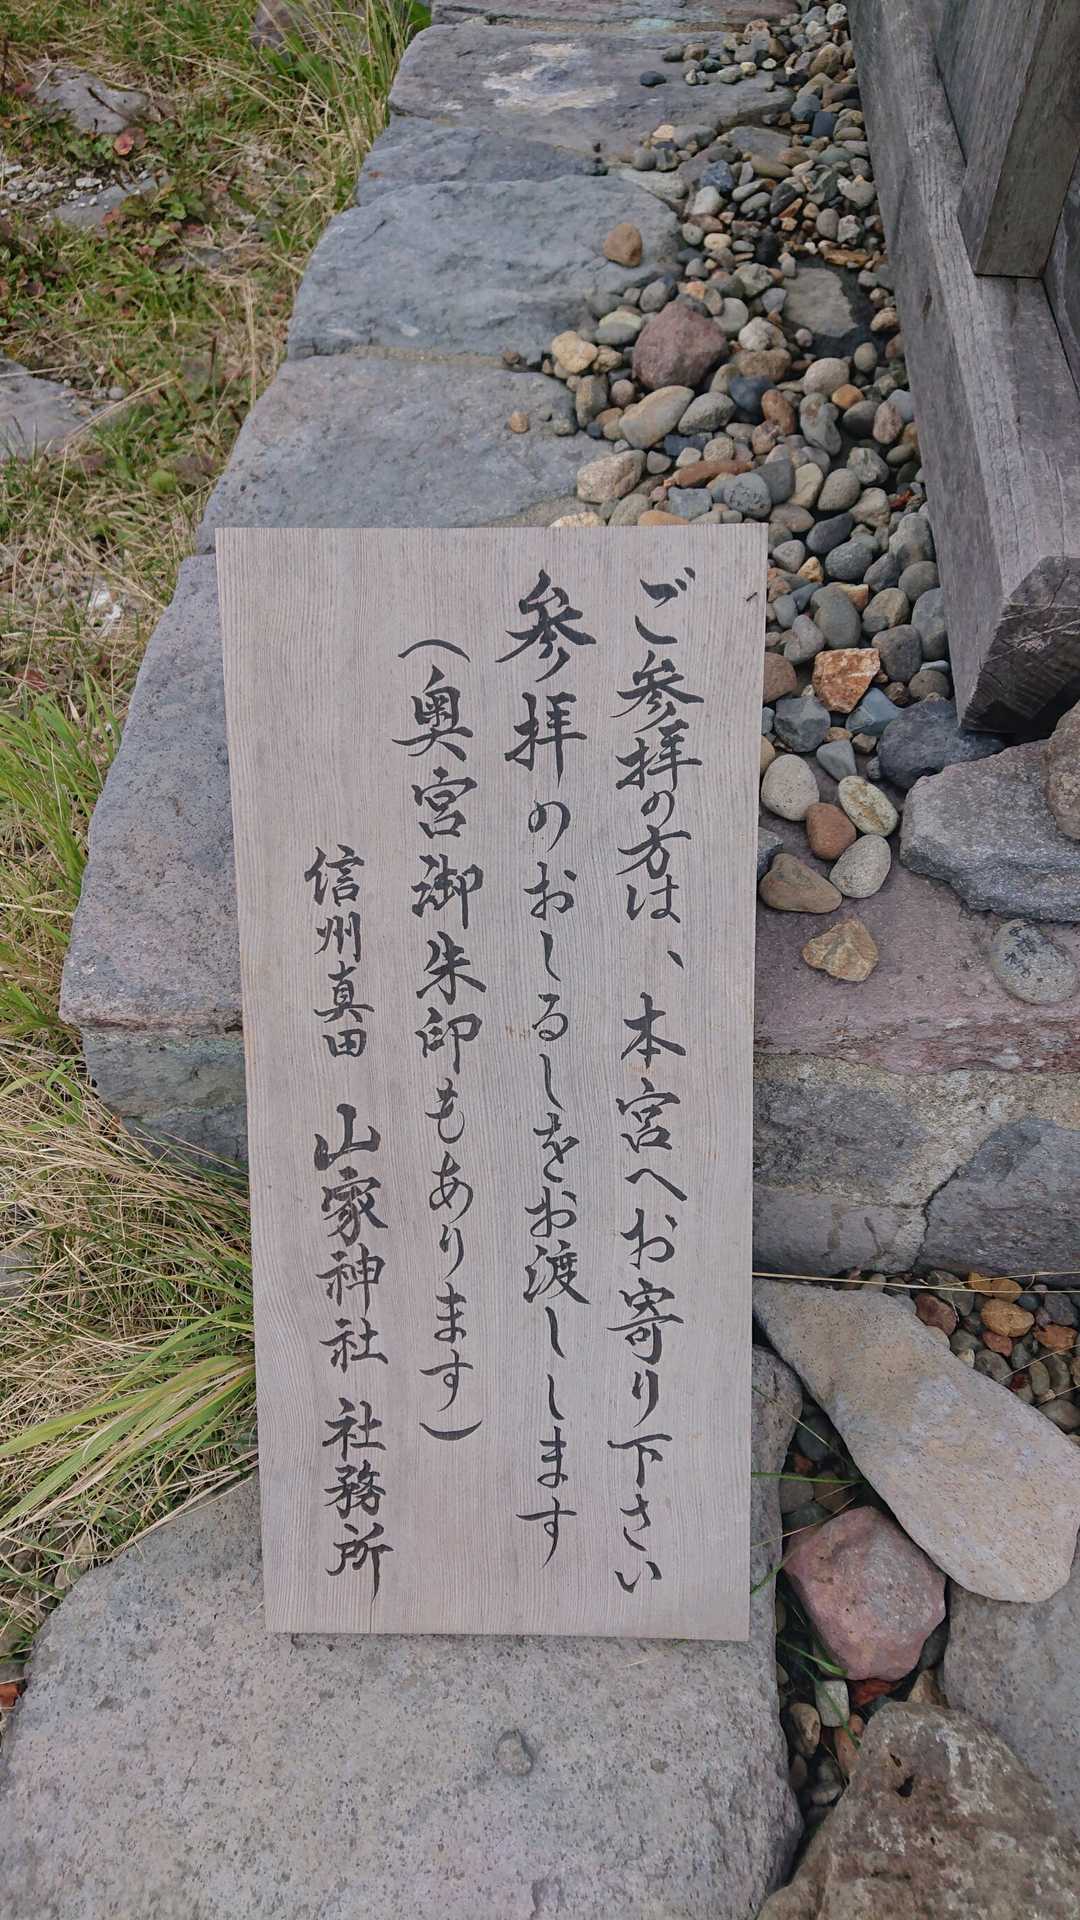 ご参拝の方は、本宮へお寄り下さい
参拝のおしるしをお渡しします
（奥宮御朱印もあります）
信州真田 山家神社 社務所